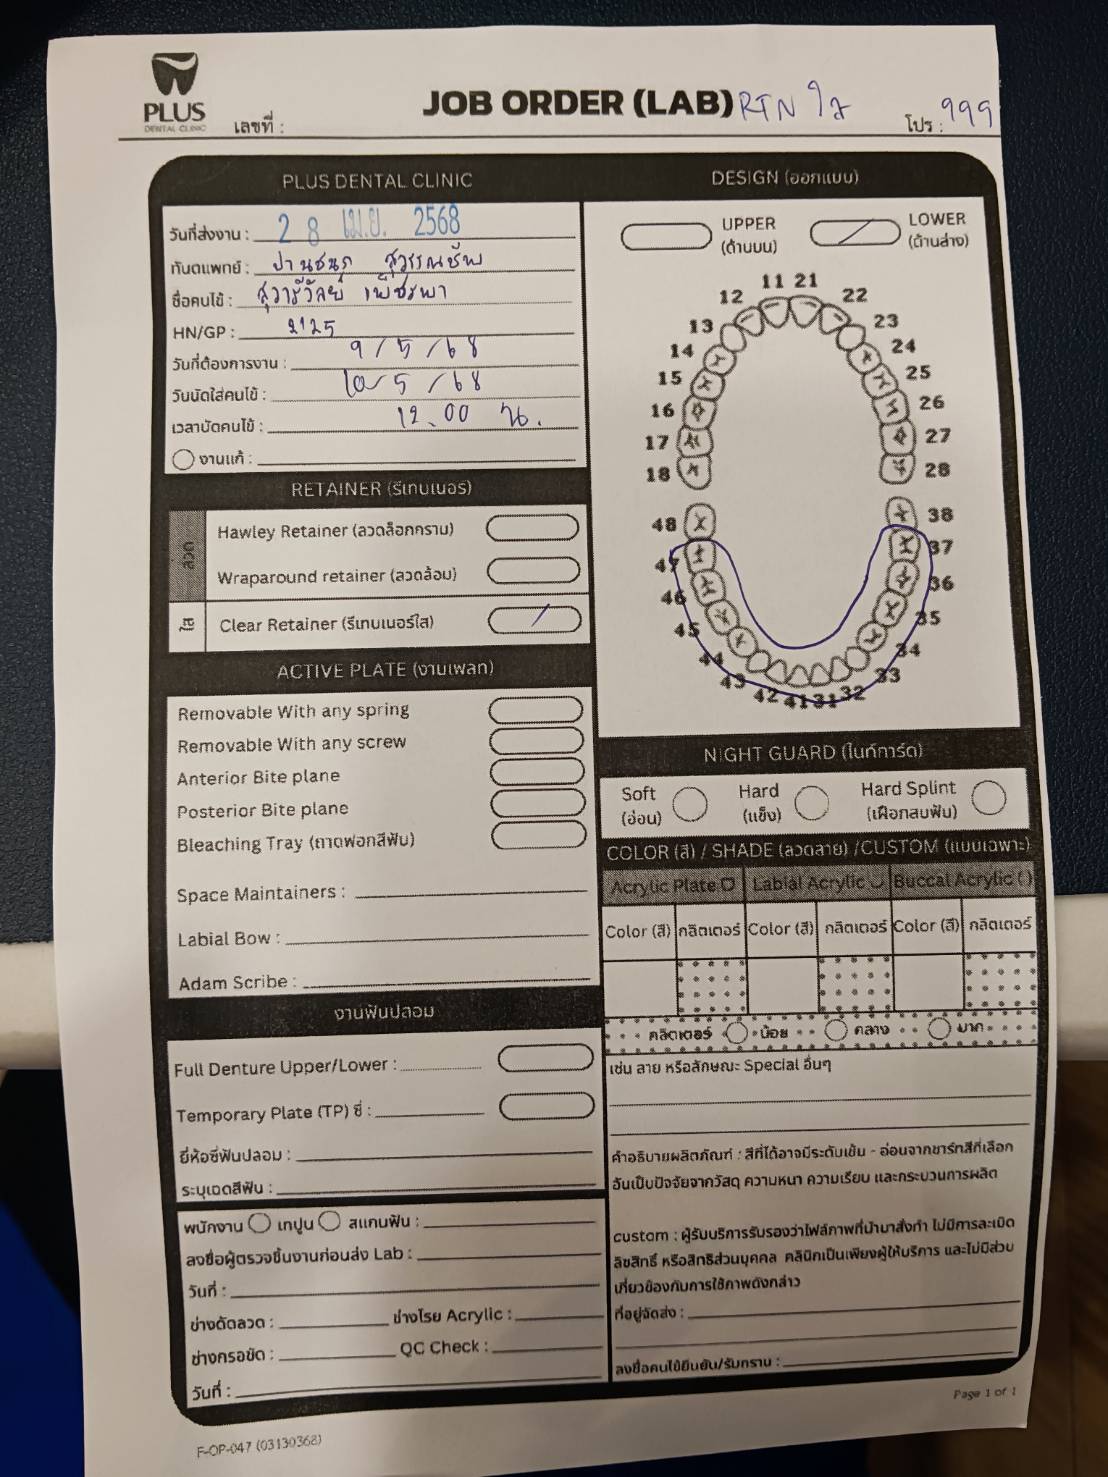 PLUS
DENTAL CLINIC
JOB ORDER (LAB) RTN ใส
เลขที่ :
โปร : 999
PLUS DENTAL CLINIC
วันที่ส่งงาน : 28 เม.ย. 2568
ทันตแพทย์ : ปานชนก สุวรรณชัพ
ชื่อคนไข้ : สุวารีวัลย์ เพ็ชรพา
HN/GP : 2125
วันที่ต้องการงาน : 9/5/68
วันนัดใส่คนไข้ : 10/5/68
เวลานัดคนไข้ : 12.00 น.
งานแก้ :
RETAINER (รีเทนเนอร์)
ลวด
Hawley Retainer (ลวดล็อกกราม)
Wraparound retainer (ลวดล้อม)
ใส
Clear Retainer (รีเทนเนอร์ใส) /
ACTIVE PLATE (งานเพลท)
Removable With any spring
Removable With any screw
Anterior Bite plane
Posterior Bite plane
Bleaching Tray (ถาดฟอกสีฟัน)
Space Maintainers :
Labial Bow :
Adam Scribe :
งานฟันปลอม
Full Denture Upper/Lower :
Temporary Plate (TP) ซี่ :
ยี่ห้อซี่ฟันปลอม :
ระบุเฉดสีฟัน :
พนักงาน เทปูน สแกนฟัน :
ลงชื่อผู้ตรวจชิ้นงานก่อนส่ง Lab :
วันที่ :
ช่างดัดลวด : ช่างโรย Acrylic :
ช่างกรอขัด : QC Check :
วันที่ :
DESIGN (ออกแบบ)
UPPER
(ด้านบน)
/ LOWER
(ด้านล่าง)
11 21
12 22
13 23
14 24
15 25
16 26
17 27
18 28
48 38
47 37
46 36
45 35
44 34
43 33
42 41 31 32
NIGHT GUARD (ไนท์การ์ด)
Soft
(อ่อน)
Hard
(แข็ง)
Hard Splint
(เฝือกสบฟัน)
COLOR (สี) / SHADE (ลวดลาย) /CUSTOM (แบบเฉพาะ)
Acrylic Plate Labial Acrylic Buccal Acrylic ( )
Color (สี) กลิตเตอร์ Color (สี) กลิตเตอร์ Color (สี) กลิตเตอร์
กลิตเตอร์ น้อย กลาง มาก
เช่น ลาย หรือลักษณะ Special อื่นๆ
คำอธิบายผลิตภัณฑ์ : สีที่ได้อาจมีระดับเข้ม - อ่อนจากชาร์ทสีที่เลือก
อันเป็นปัจจัยจากวัสดุ ความหนา ความเรียบ และกระบวนการผลิต
custom : ผู้รับบริการรับรองว่าไฟล์ภาพที่นำมาสั่งทำ ไม่มีการละเมิด
ลิขสิทธิ์ หรือสิทธิส่วนบุคคล คลินิกเป็นเพียงผู้ให้บริการ และไม่มีส่วน
เกี่ยวข้องกับการใช้ภาพดังกล่าว
ที่อยู่จัดส่ง :
ลงชื่อคนไข้ยืนยัน/รับทราบ :
Page 1 of 1
F-OP-047 (03130368)